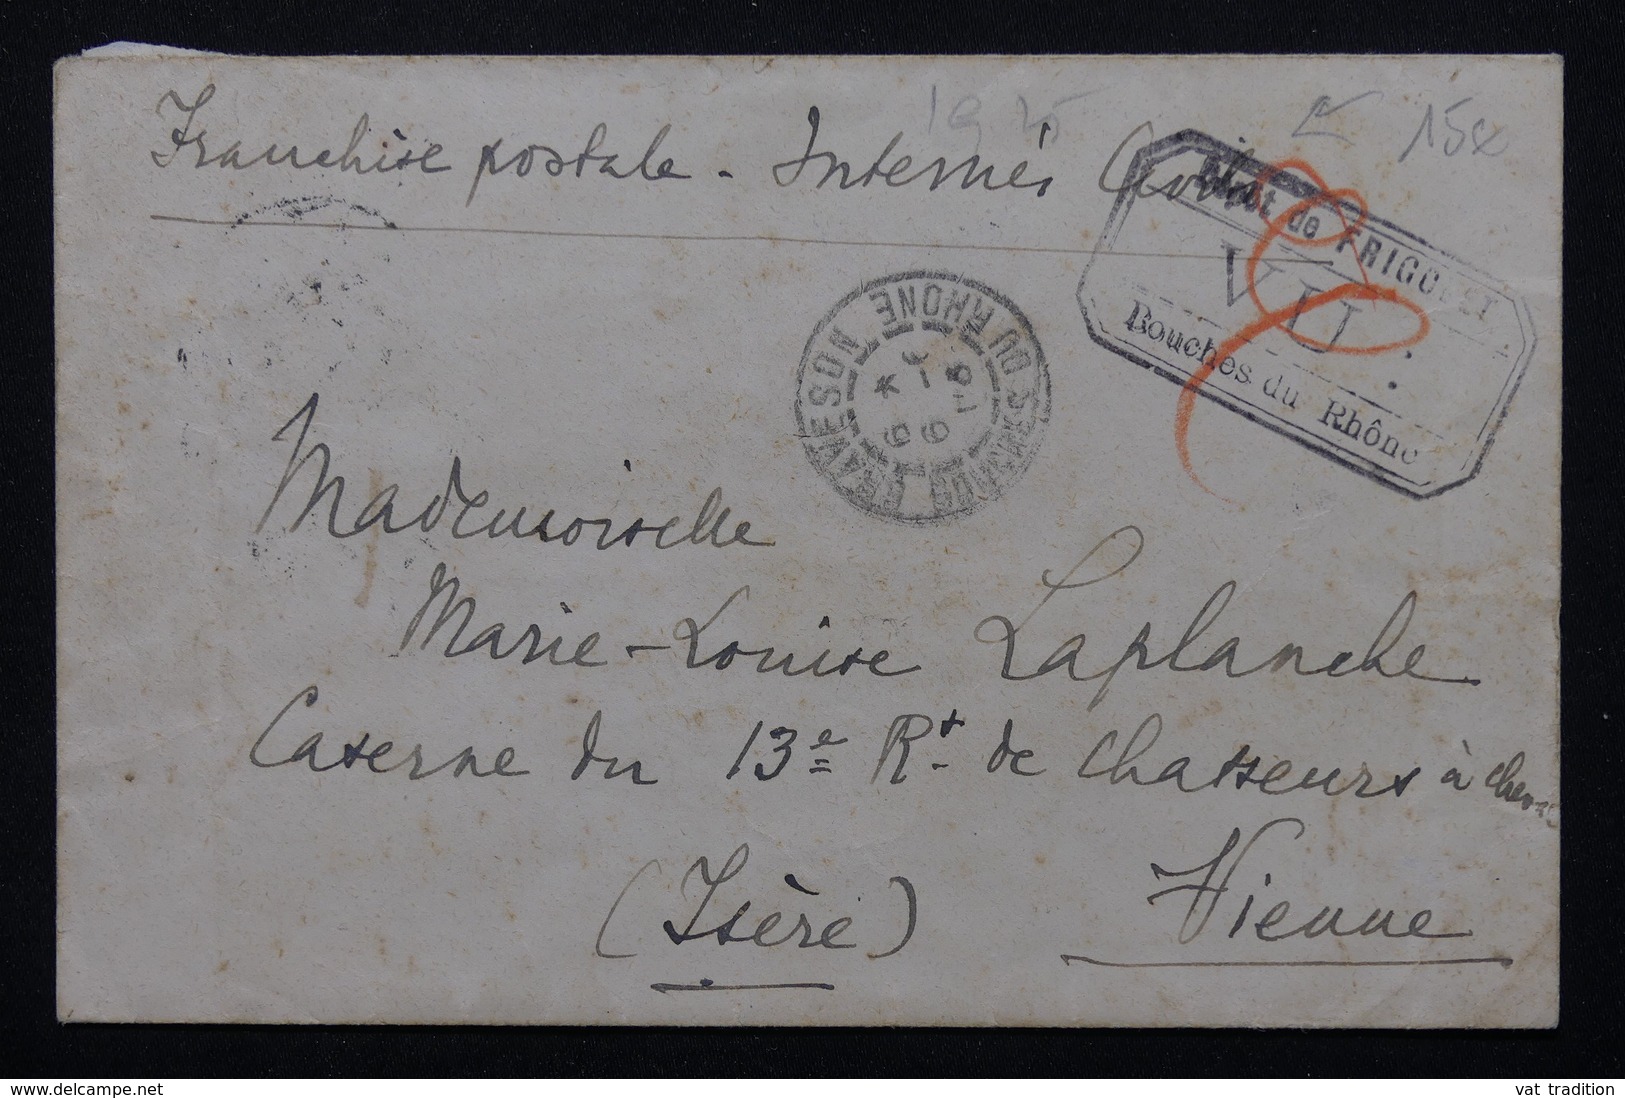 1915
15€
Franchise postale - Internés Civils
Dépôt de FRIGOLET
VU :
Bouches du Rhône
GRAVESON
BOUCHES DU RHONE
Mademoiselle
Marie-Louise Laplanche
Caserne du 13e Rt. de Chasseurs à cheval
(Isère) Vienne
www.delcampe.net
vat_tradition